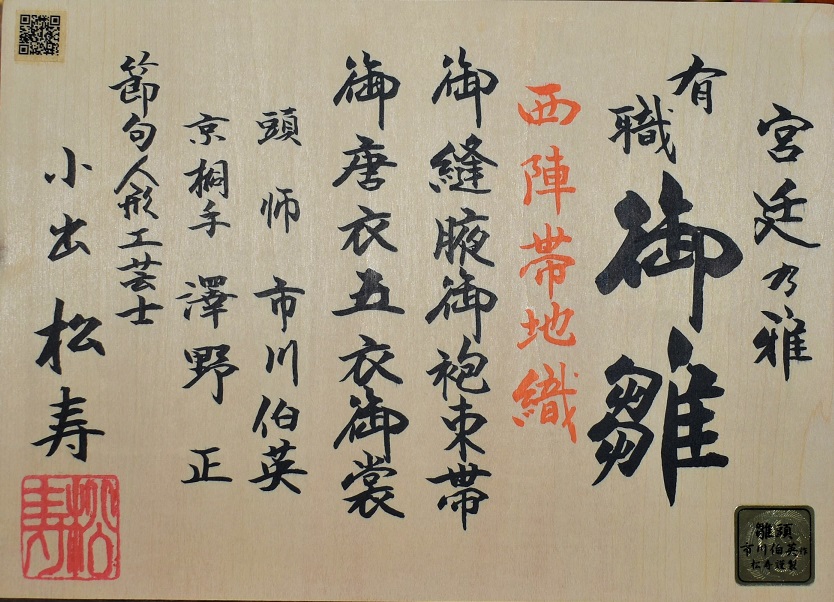 宮廷乃雅
有職御雛
西陣帯地織
御縫腋御袍束帯
御唐衣五衣御裳
頭師市川伯英
京桐手澤野正
節句人形工芸士
小出松寿
松寿
雛頭
市川伯英作
松寿謹製